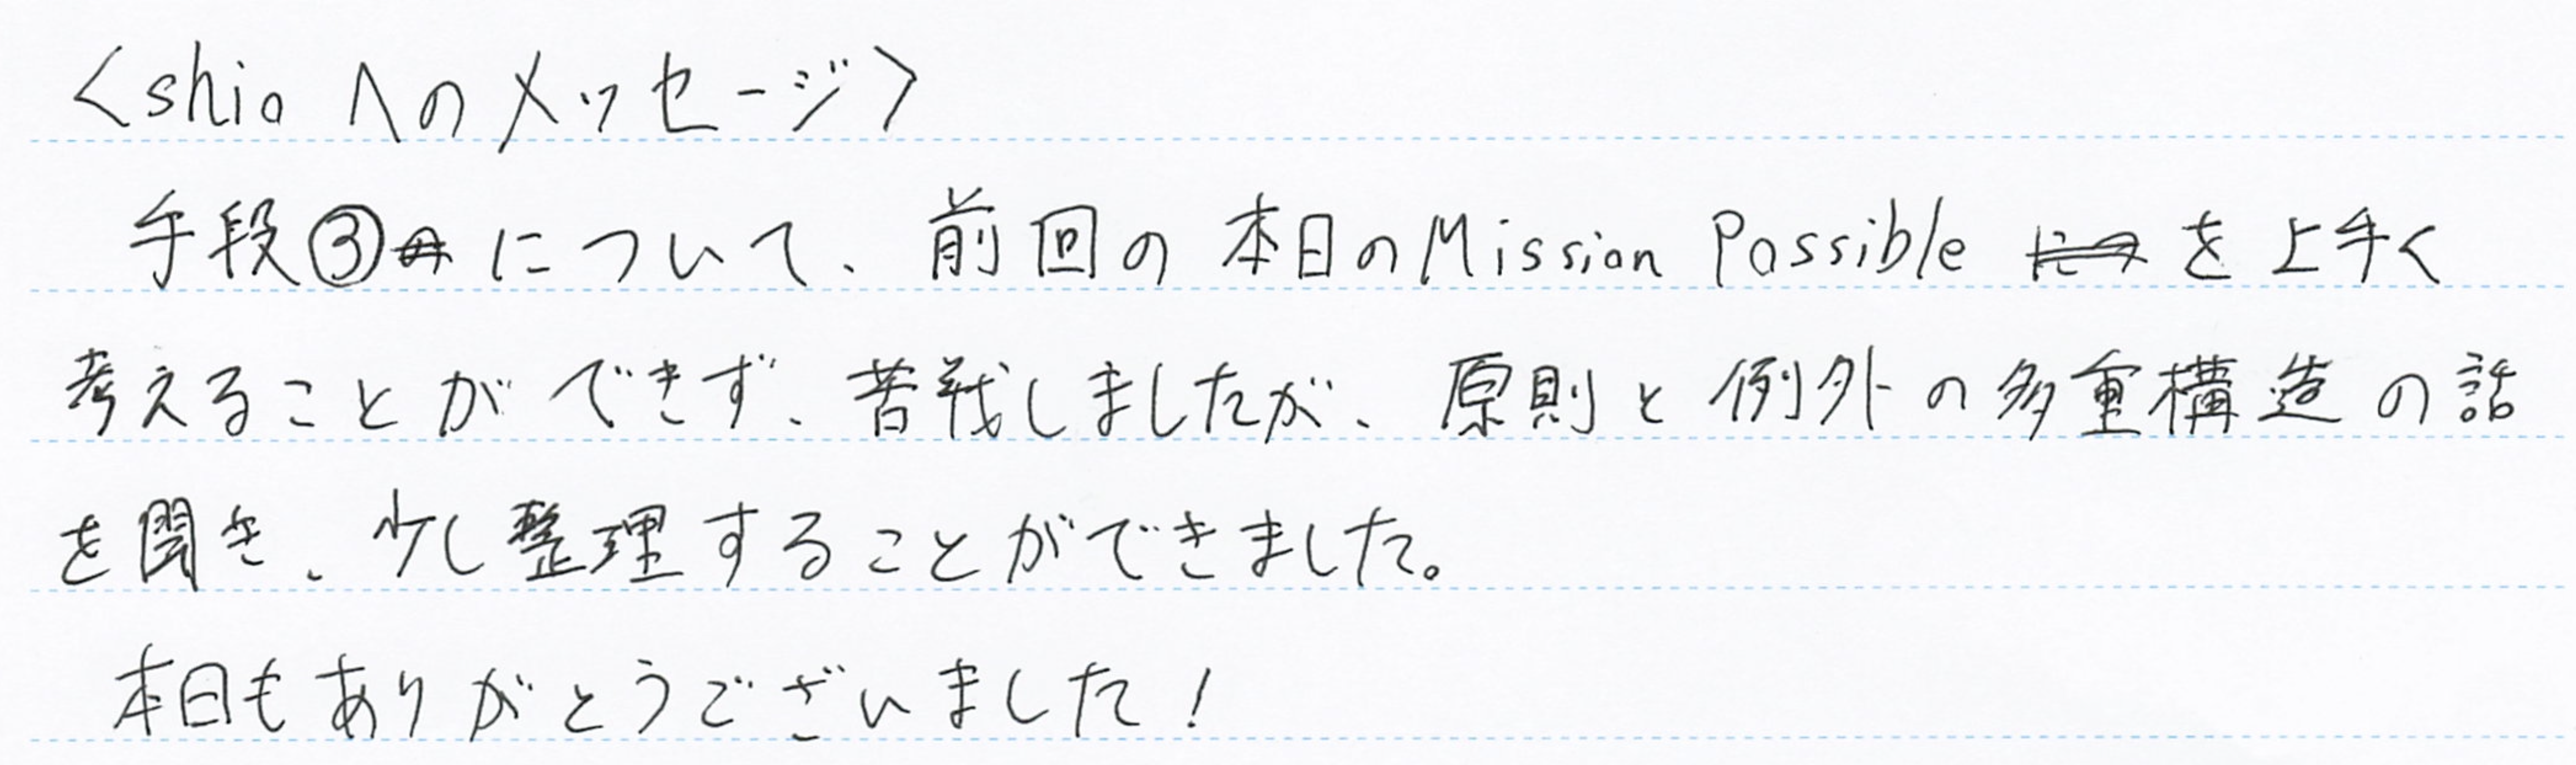 <shioへのメッセージ>
手段③について、前回の本日のMission Possibleを上手く
考えることができず、苦戦しましたが、原則と例外の多重構造の話
を聞き、少し整理することができました。
本日もありがとうございました!